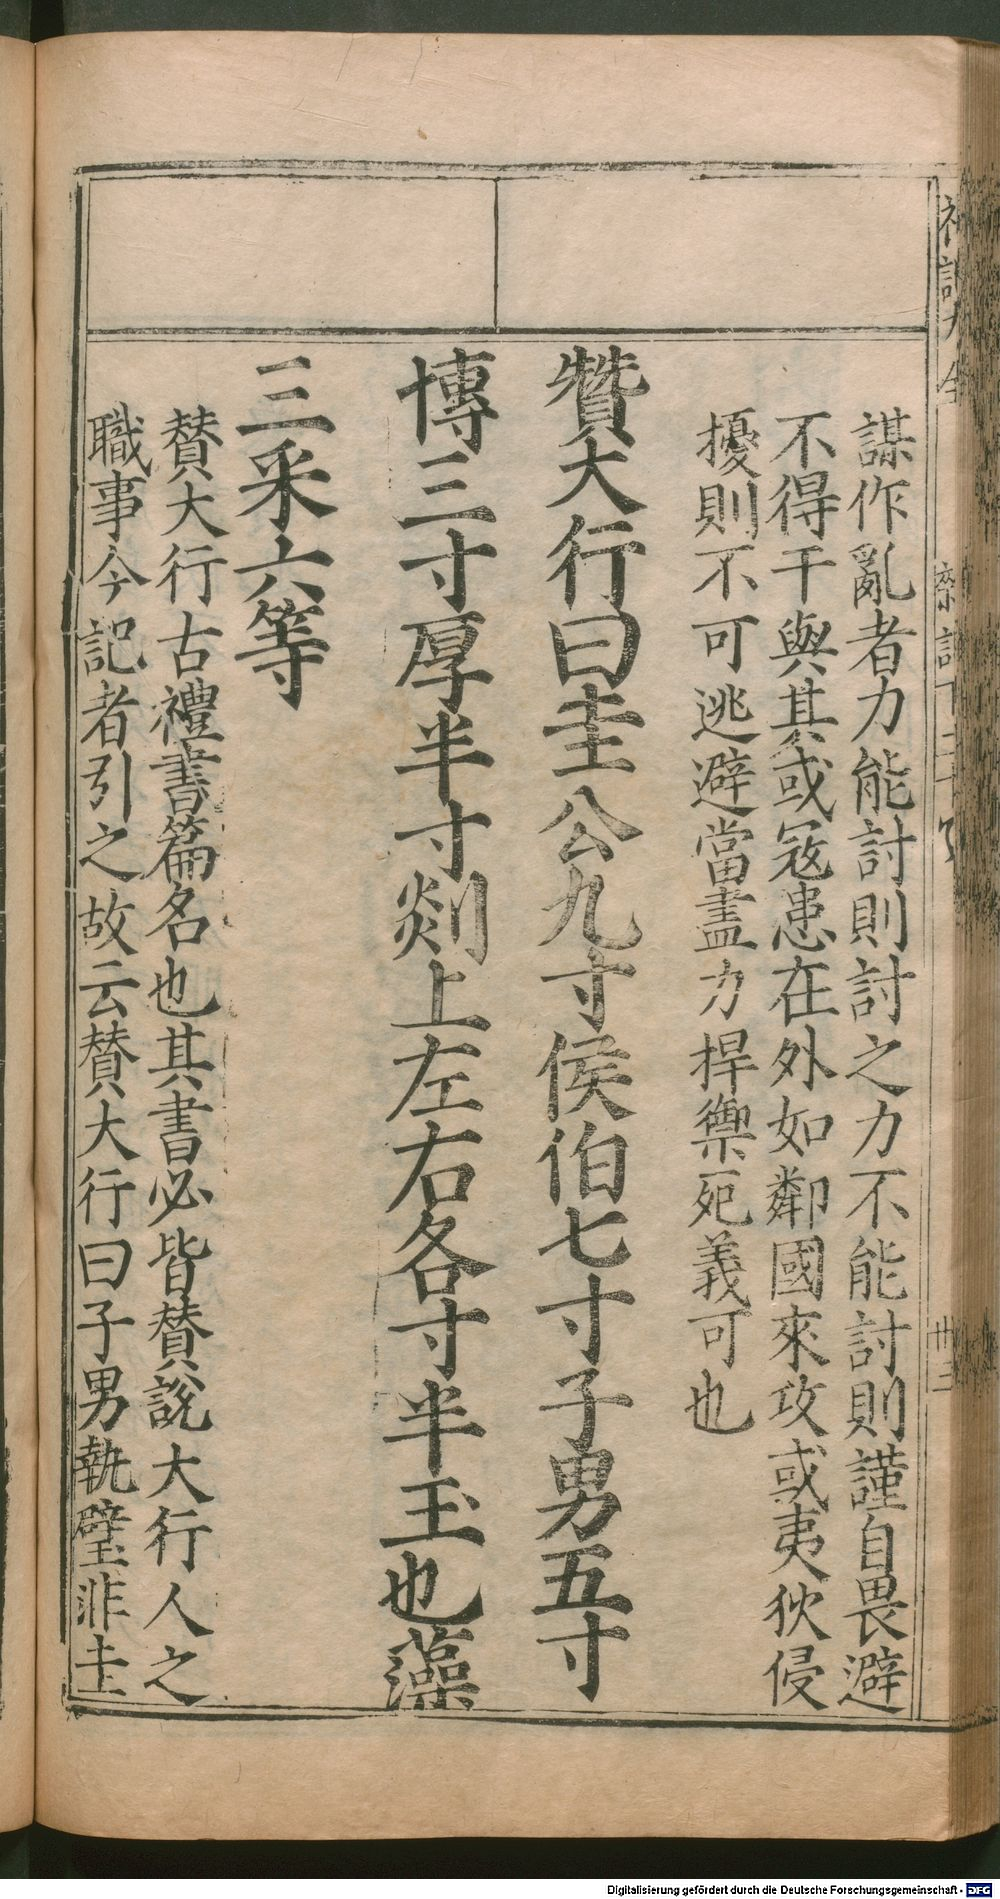 謀作亂者力能討則討之力不能討則謹自畏避
不得干與其或寇患在外如鄰國來攻或夷狄侵
擾則不可逃避當盡力捍禦死義可也
贊大行曰圭公九寸侯伯七寸子男五寸
博三寸厚半寸剡上左右各寸半玉也藻
三采六等
賛大行古禮書篇名也其書必皆賛說大行人之
職事今記者引之故云賛大行曰子男執璧非圭
Digitalisierung gefördert durch die Deutsche Forschungsgemeinschaft - DFG